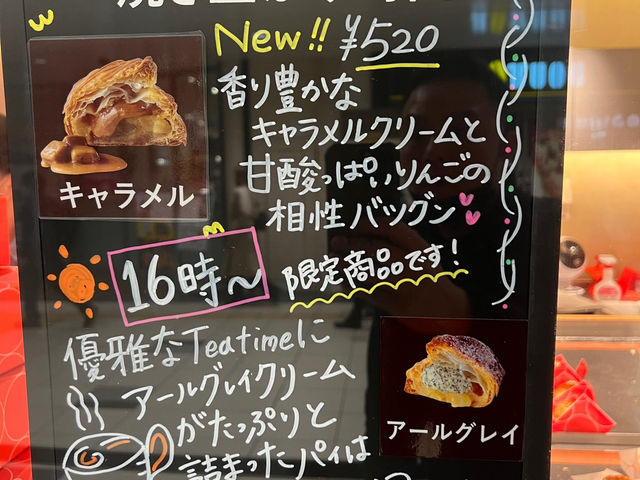 New!! ¥520
香り豊かな
キャラメルクリームと
甘酸っぱいりんごの
相性バツグン
キャラメル
16時〜
限定商品です!
優雅なTeatimeに
アールグレイクリーム
がたっぷりと
詰まったパイは
アールグレイ